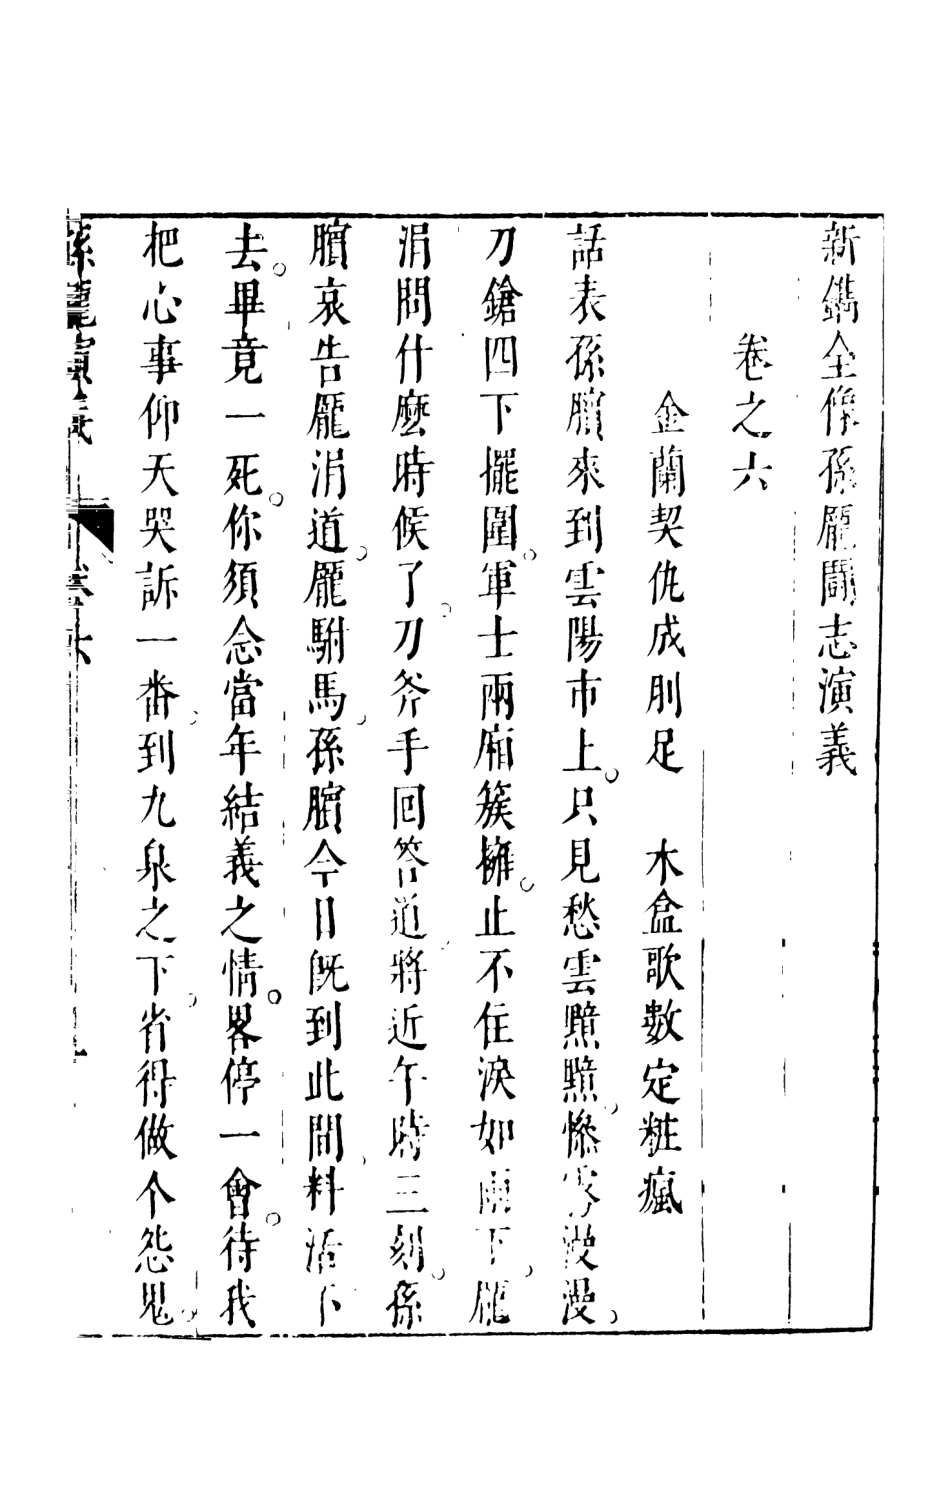 新鐫全像孫龐鬪志演義
卷之六
金蘭契仇成刖足　木盒歌數定粧瘋
話表孫臏來到雲陽市上。只見愁雲黯黯慘霧漫漫。
刀鎗四下擺圍。軍士兩廂簇擁。止不住淚如雨下。龐
涓問什麼時候了。刀斧手回答道將近午時三刻。孫
臏哀告龐涓道。龐駙馬。孫臏今日旣到此間料活下
去。畢竟一死。你須念當年結義之情。畧停一會。待我
把心事仰天哭訴一番。到九泉之下。省得做个怨鬼。
孫龐演義　卷六